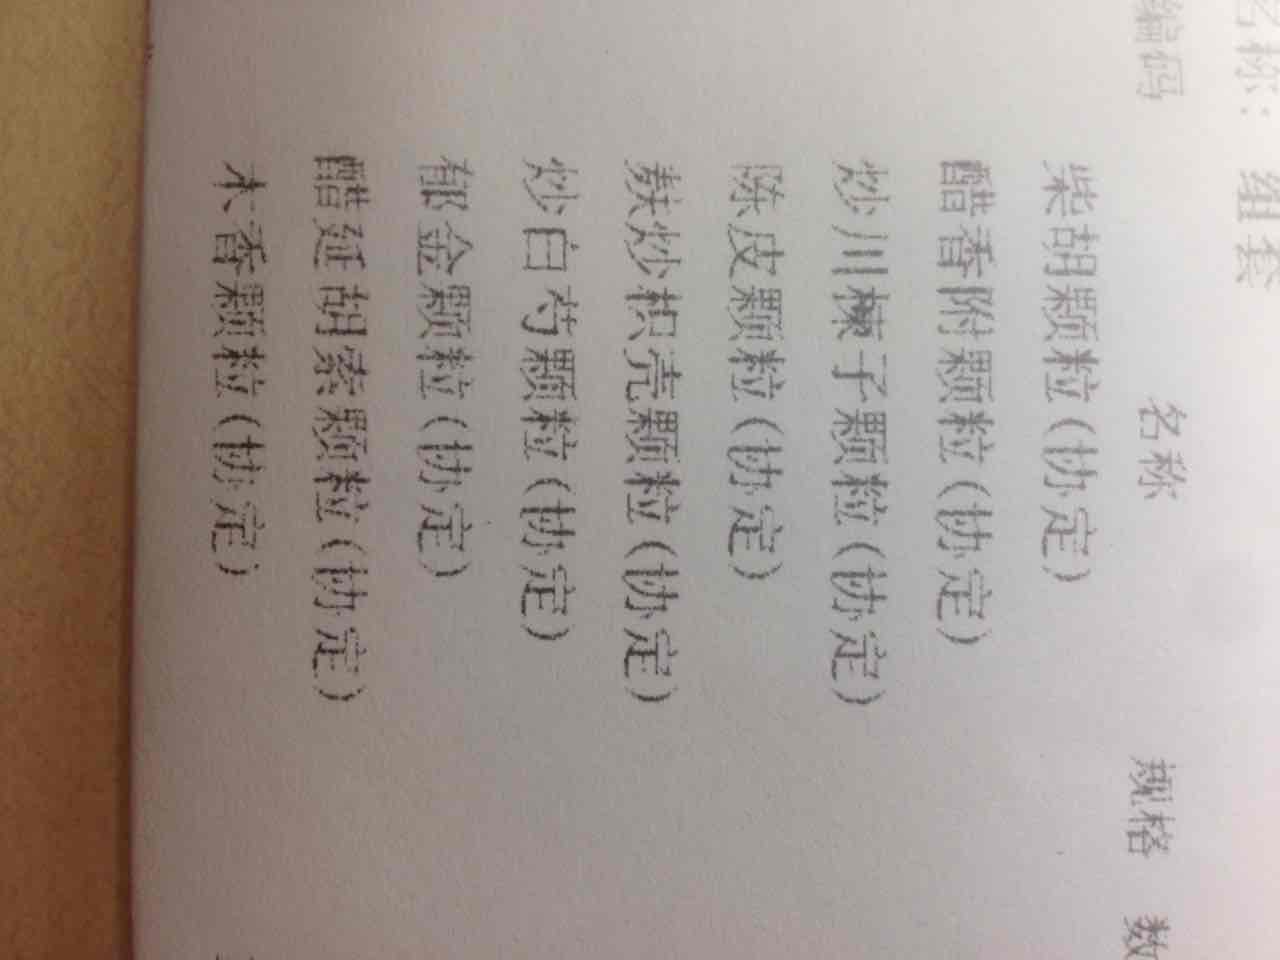 名称：组套
编码 名称 规格 数
柴胡颗粒(协定)
醋香附颗粒(协定)
炒川楝子颗粒(协定)
陈皮颗粒(协定)
麸炒枳壳颗粒(协定)
炒白芍颗粒(协定)
郁金颗粒(协定)
醋延胡索颗粒(协定)
木香颗粒(协定)